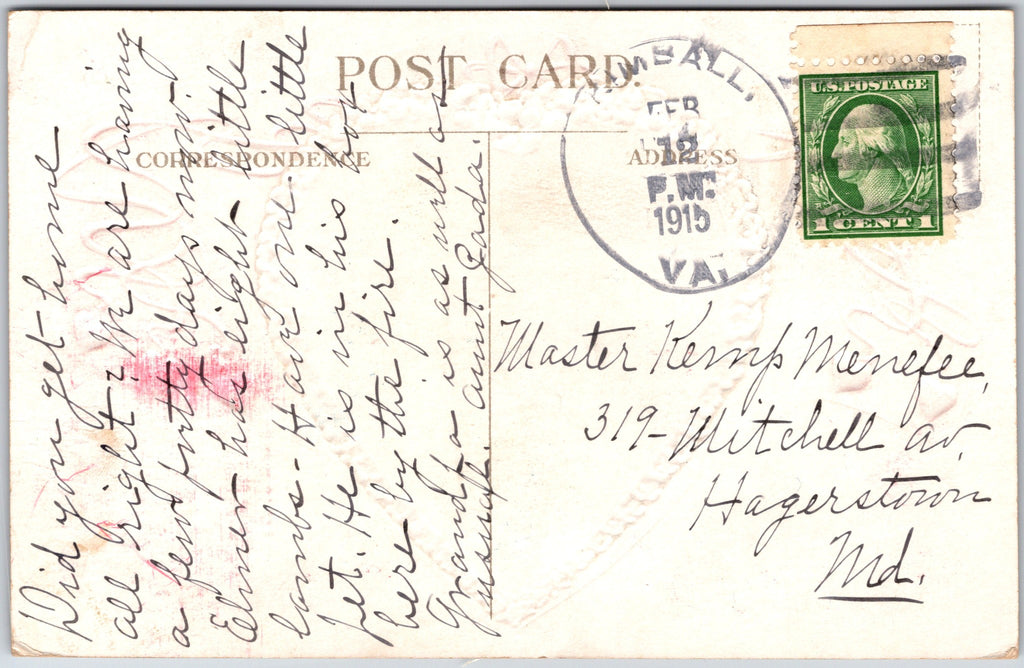 POST CARD.
CORRESPONDENCE
ADDRESS
KIMBALL,
FEB
12
P.M.
1915
VA.
U.S. POSTAGE
1 CENT 1
Did you get home
all right? We are having
a few pretty days now.
Elmer has eight little
lambs - Have one little
pet. He is in his box
here by the fire.
Grandpa is as well as
usual. Aunt Gada.
Master Kemp Menefee,
319 - Mitchell av.
Hagerstown
Md.